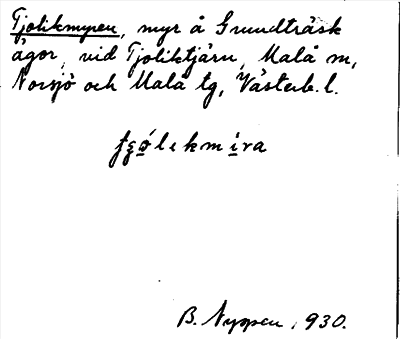 Tjolikmyren, myr å Grundträsk
ägor, vid Tjoliktjärn, Malå m,
Norsjö och Malå tg, Västerb. l.
B. Nyppen, 930.